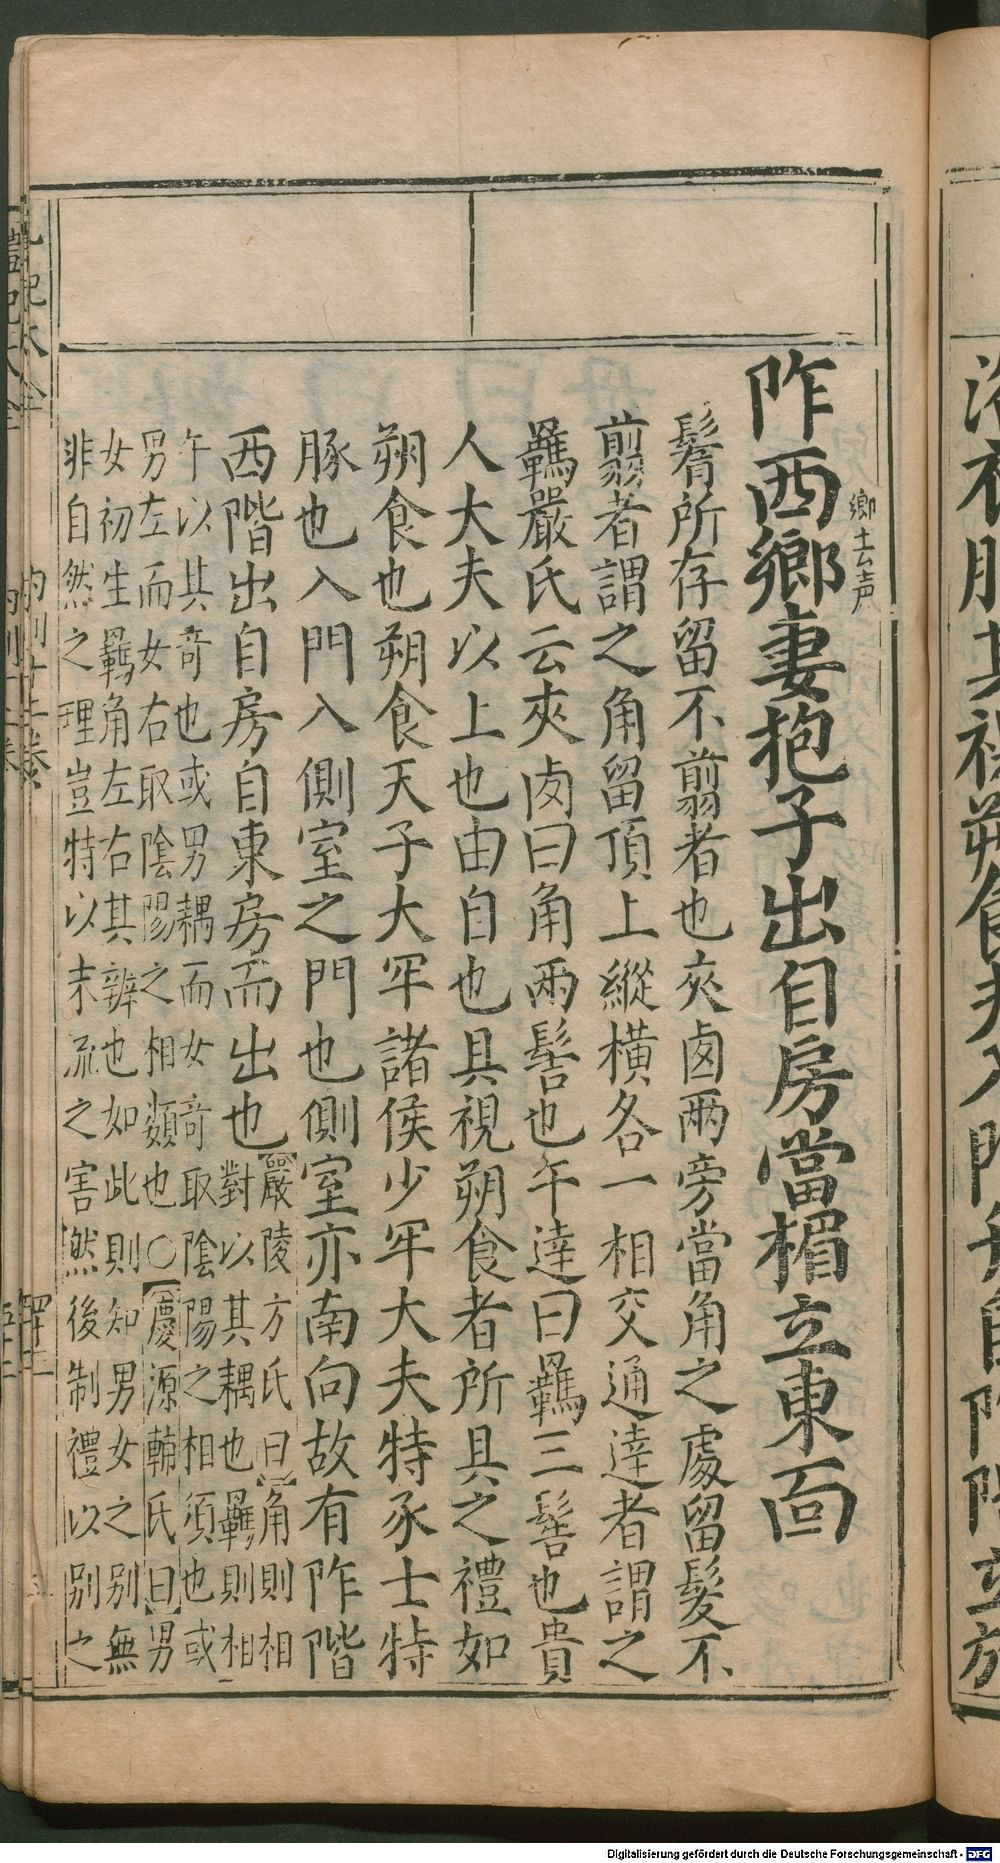 阼西鄉妻抱子出自房當楣立東面
鄉去声
鬌所存留不翦者也夾囟兩旁當角之處留髮不
翦者謂之角留頂上縱橫各一相交通達者謂之
羈嚴氏云夾囟曰角兩髻也午達曰羈三髻也貴
人大夫以上也由自也具視朔食者所具之禮如
朔食也朔食天子大牢諸侯少牢大夫特豕士特
豚也入門入側室之門也側室亦南向故有阼階
西階出自房自東房而出也
嚴陵方氏曰角則相
對以其耦也羈則相
午以其奇也或男耦而女奇取陰陽之相須也或
男左而女右取陰陽之相類也○慶源輔氏曰男
女初生羈角左右其辨也如此則知男女之別無
非自然之理豈特以末流之害然後制禮以別之
Digitalisierung gefördert durch die Deutsche Forschungsgemeinschaft - DFG